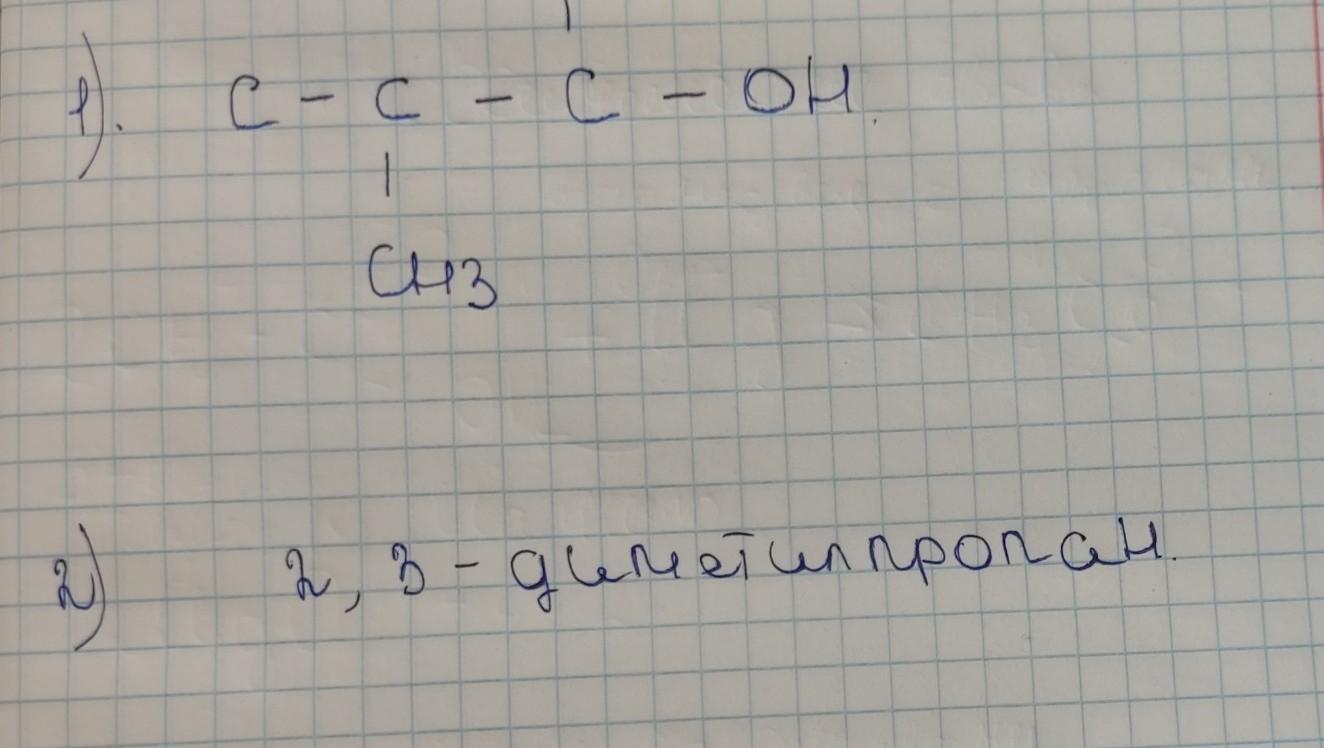 1). C - C - C - OH.
|
CH3
2) 2, 3 - диметилпропан.